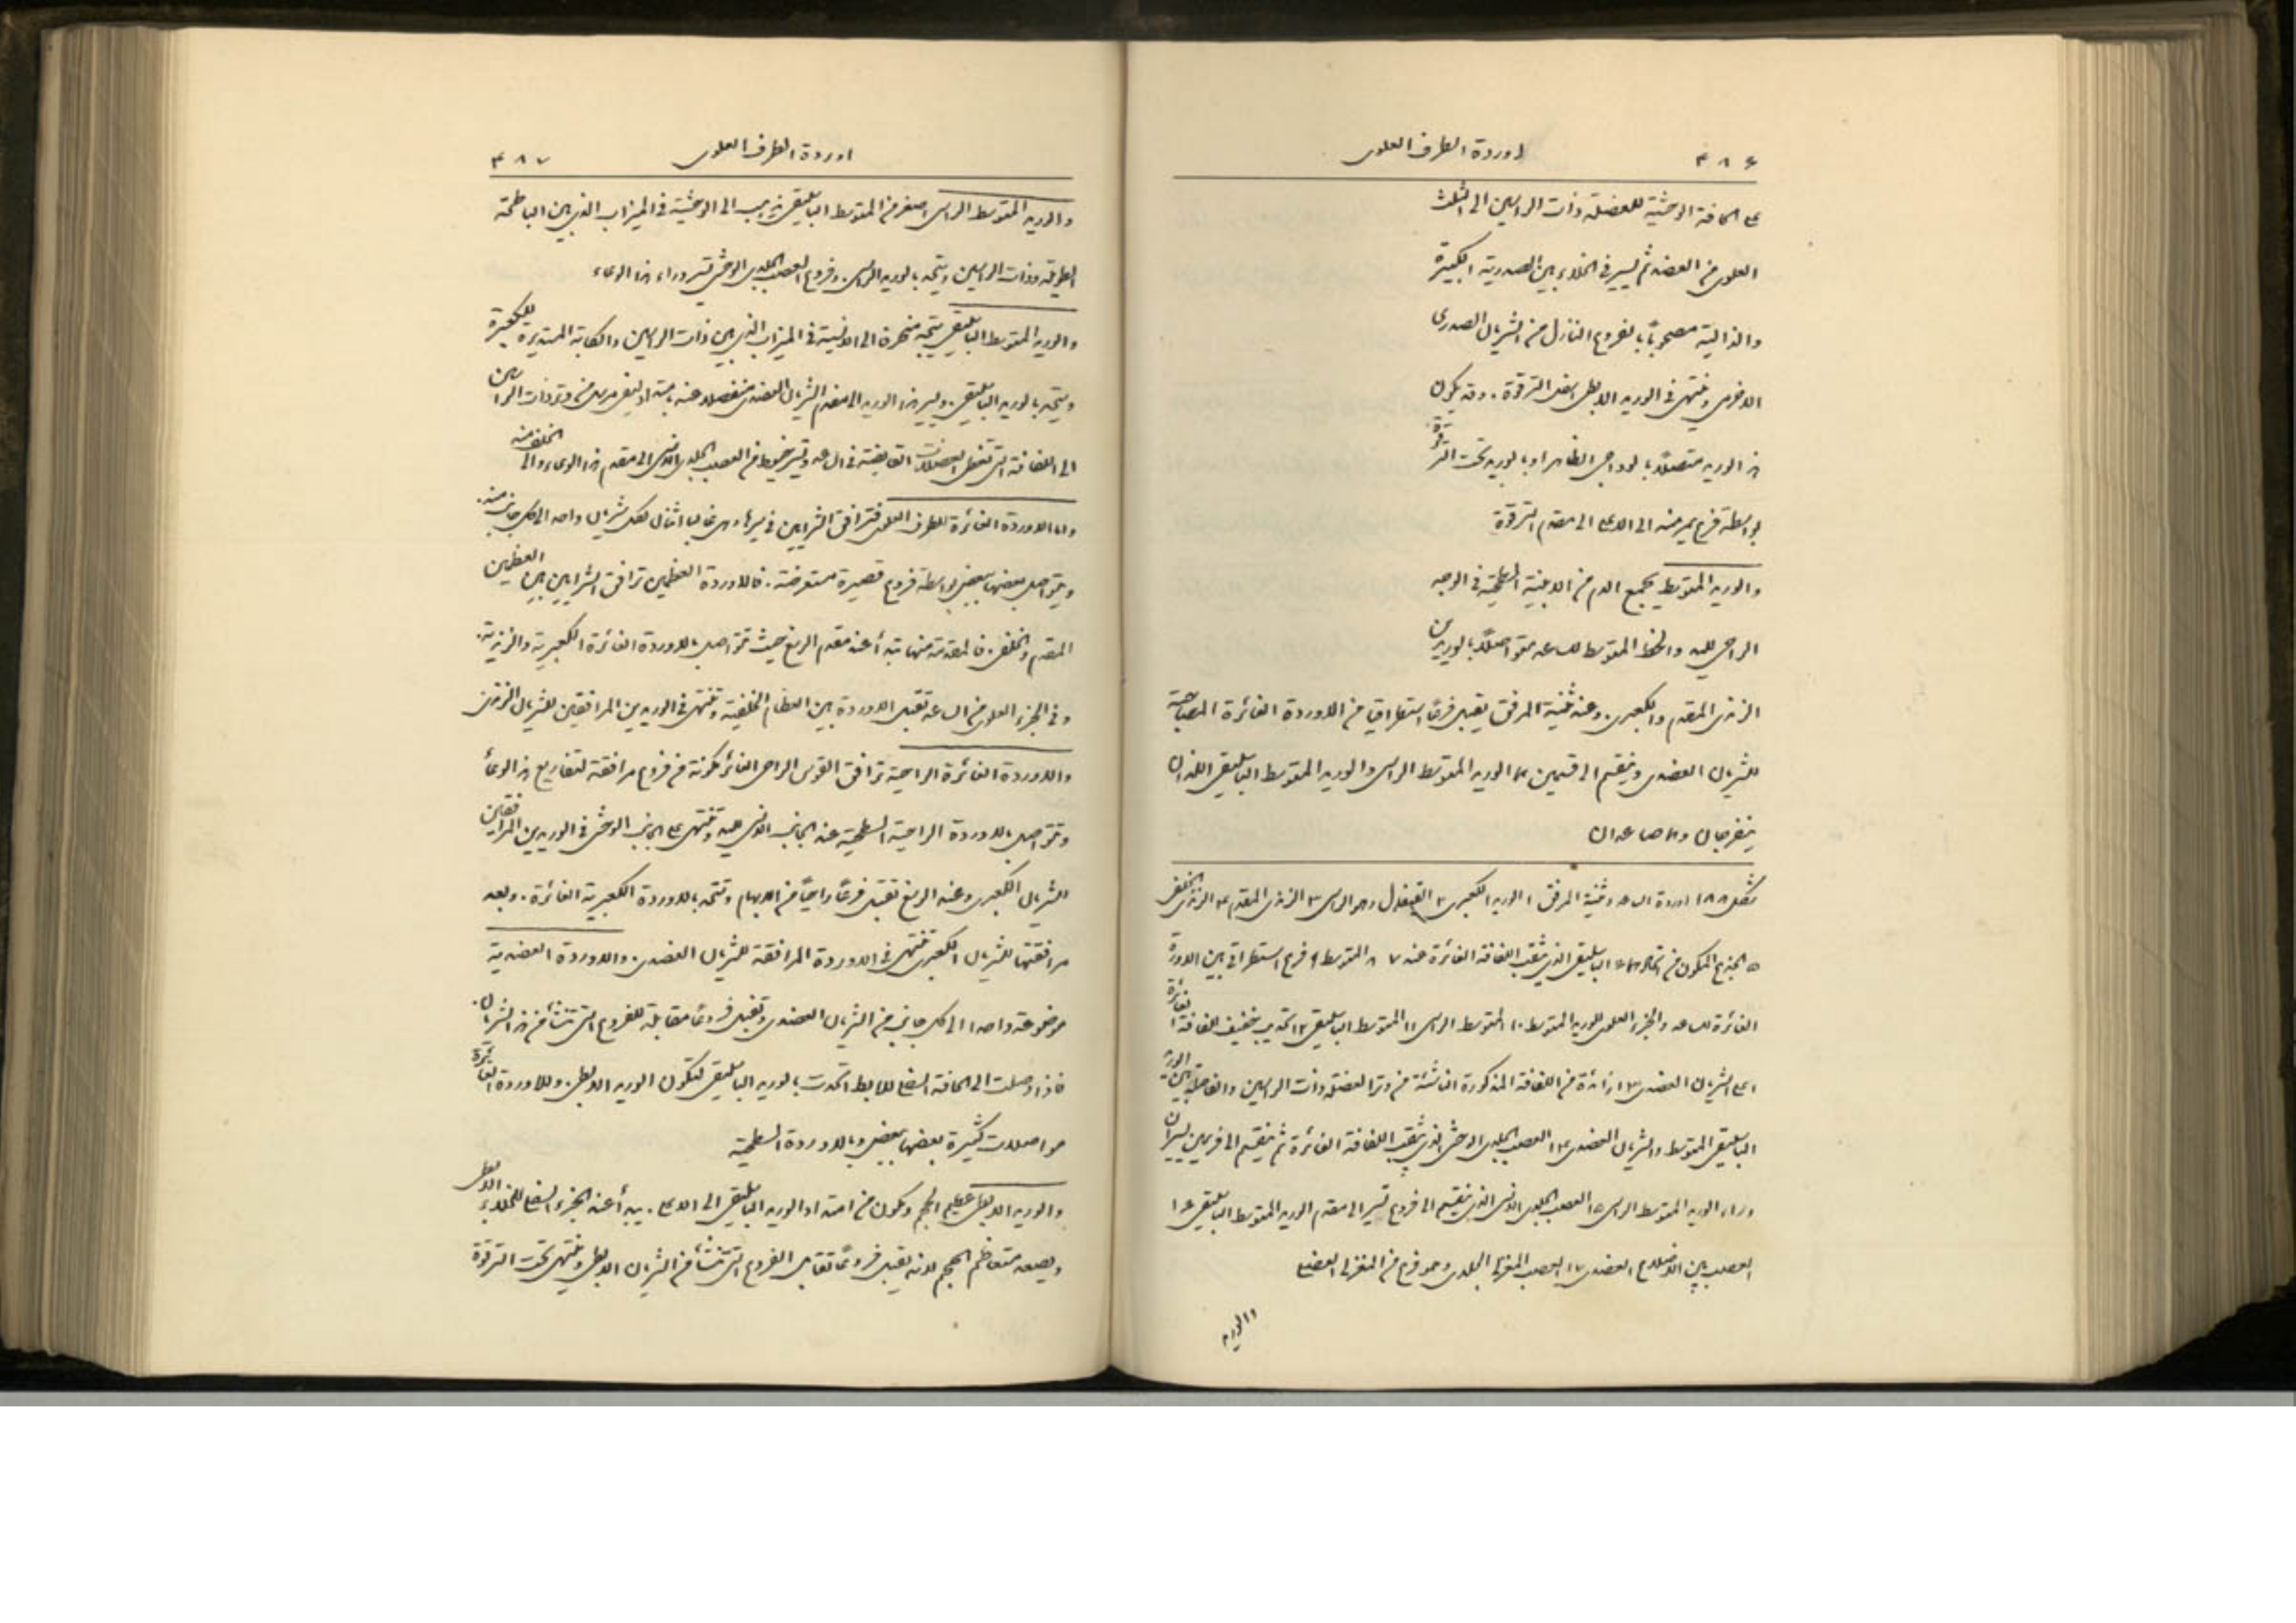 ٤٨٦
اوردة الطرف العلوى
على الحافة الوحشية للعضلة ذات الراسين الى الثلث
العلوى من العضد ثم يسير فى الخلاء بين الصدرية الكبيرة
والدالية مصحوباً بالفروع النازل من الشريان الصدرى
الاخرمى وينتهى فى الوريد الابطى اسفل الترقوة. وقد يكون
هذا الوريد متصلاً بالوداجى الظاهر او بالوريد تحت الترقوة
بواسطة فرع يمر منه الى الاعلى الى مقدم الترقوة
والوريد المتوسط يجمع الدم من الابنية السطحية فى الوجه
الراحى لليد والخط المتوسط للساعد متواصلاً بالوريدين
الزندى المقدم والكعبرى. وعند ثنية المرفق يقبل فرعاً استطراقياً من الاوردة الغائرة المصاحبة
للشريان العضدى وينقسم الى قسمين هما الوريد المتوسط الراسى والوريد المتوسط الباسليقى اللذان
ينفرجان وهما صاعدان
شكل ١٨٨ اوردة الساعد وثنية المرفق ١ الوريد الكعبرى ٢ القيفال وهو الراسى ٣ الزندى المقدم ٤ الزندى الخلفى
٥ الجذع المكون من اتحادهما ٦ الباسليقى الذى يثقب اللفافة الغائرة عند ٧ ٨ المتوسط ٩ فرع استطراقى بين الاوردة
الغائرة للساعد والجزء العلوى للوريد المتوسط ١٠ المتوسط الراسى ١١ المتوسط الباسليقى ١٢ تحديب خفيف للفافة الغائرة
على الشريان العضدى ١٣ زائدة من اللفافة المذكورة الناشئة من وتر العضلة ذات الراسين والفاصلة بين الوريد
الباسليقى المتوسط والشريان العضدى ١٤ العصب الجلدى الوحشى الذى يثقب اللفافة الغائرة ثم ينقسم الى فرعين يسيران
وراء الوريد المتوسط الراسى ١٥ العصب الجلدى الانسى الذى ينقسم الى فروع تسير الى مقدم الوريد المتوسط الباسليقى ١٦
العصب بين الاضلاع العضدى ١٧ العصب المغزلى الجلدى وهو فرع من المغزلى العضلى
اوردة الطرف العلوى
٤٨٧
والوريد المتوسط الراسى اصغر من المتوسط الباسليقى يذهب الى الوحشية فى الميزاب الذى بين الباطحة
الطويلة وذات الراسين ويتحد بالوريد الراسى. وفروع العصب الجلدى الوحشى تسير وراء هذا الوعاء
والوريد المتوسط الباسليقى يتجه منحرفاً الى الانسية فى الميزاب الذى بين ذات الراسين والكابة المستديرة للكعبرة
ويتحد بالوريد الباسليقى. ويسير هذا الوريد الى مقدم الشريان العضدى منفصلاً عنه بامتداد ليفى مرسل من وتر ذات الراسين
الى اللفافة التى تغطى العضلات القابضة فى الساعد وتسير خيوط من العصب الجلدى الانسى الى مقدم هذا الوعاء والى الخلف منه
واما الاوردة الغائرة للطرف العلوى فترافق الشرايين فى سيرها وهى غالباً اثنان لكل شريان واحد الى كل جانب منه.
ويتواصل بعضها ببعض بواسطة فروع قصيرة مستعرضة. فالاوردة العظمين ترافق الشرايين بين العظمين
المقدم والخلفى. فالمقدمة منها تبدأ عند مقدم الرسغ حيث تتواصل بالاوردة الغائرة الكعبرية والزندية.
وفى الجزء العلوى من الساعد تقبل الاوردة بين العظام الخلفية وتنتهى فى الوريدين المرافقين للشريان الزندى
والاوردة الغائرة الراحية ترافق القوس الراحى الغائر مكونة من فروع مرافقة لتفاريع هذا الوعاء
وتتواصل بالاوردة الراحية السطحية عند الجانب الانسى لليد وتنتهى على الجانب الوحشى فى الوريدين المرافقين
للشريان الكعبرى وعند الرسغ تقبل فرعاً راحياً من الابهام وتتحد بالاوردة الكعبرية الغائرة. وبعد
مرافقتها للشريان الكعبرى تنتهى فى الاوردة المرافقة للشريان العضدى. والاوردة العضدية
موضوعة واحداً الى كل جانب من الشريان العضدى وتقبل فروعاً مقابلة للفروع التى تنشأ من هذا الشريان.
فاذا وصلت الى الحافة السفلى للابط اتحدت بالوريد الباسليقى لتكون الوريد الابطى. وللاوردة الغائرة
مواصلات كثيرة بعضها ببعض وبالاوردة السطحية
والوريد الابطى عظيم الحجم ويكون من امتداد الوريد الباسليقى الى الاعلى. يبدأ عند الجزء السفلى للخلاء الابطى
ويصعد متعاظم الحجم لانه يقبل فروعاً تقابل الفروع التى تنشأ من الشريان الابطى وينتهى تحت الترقوة